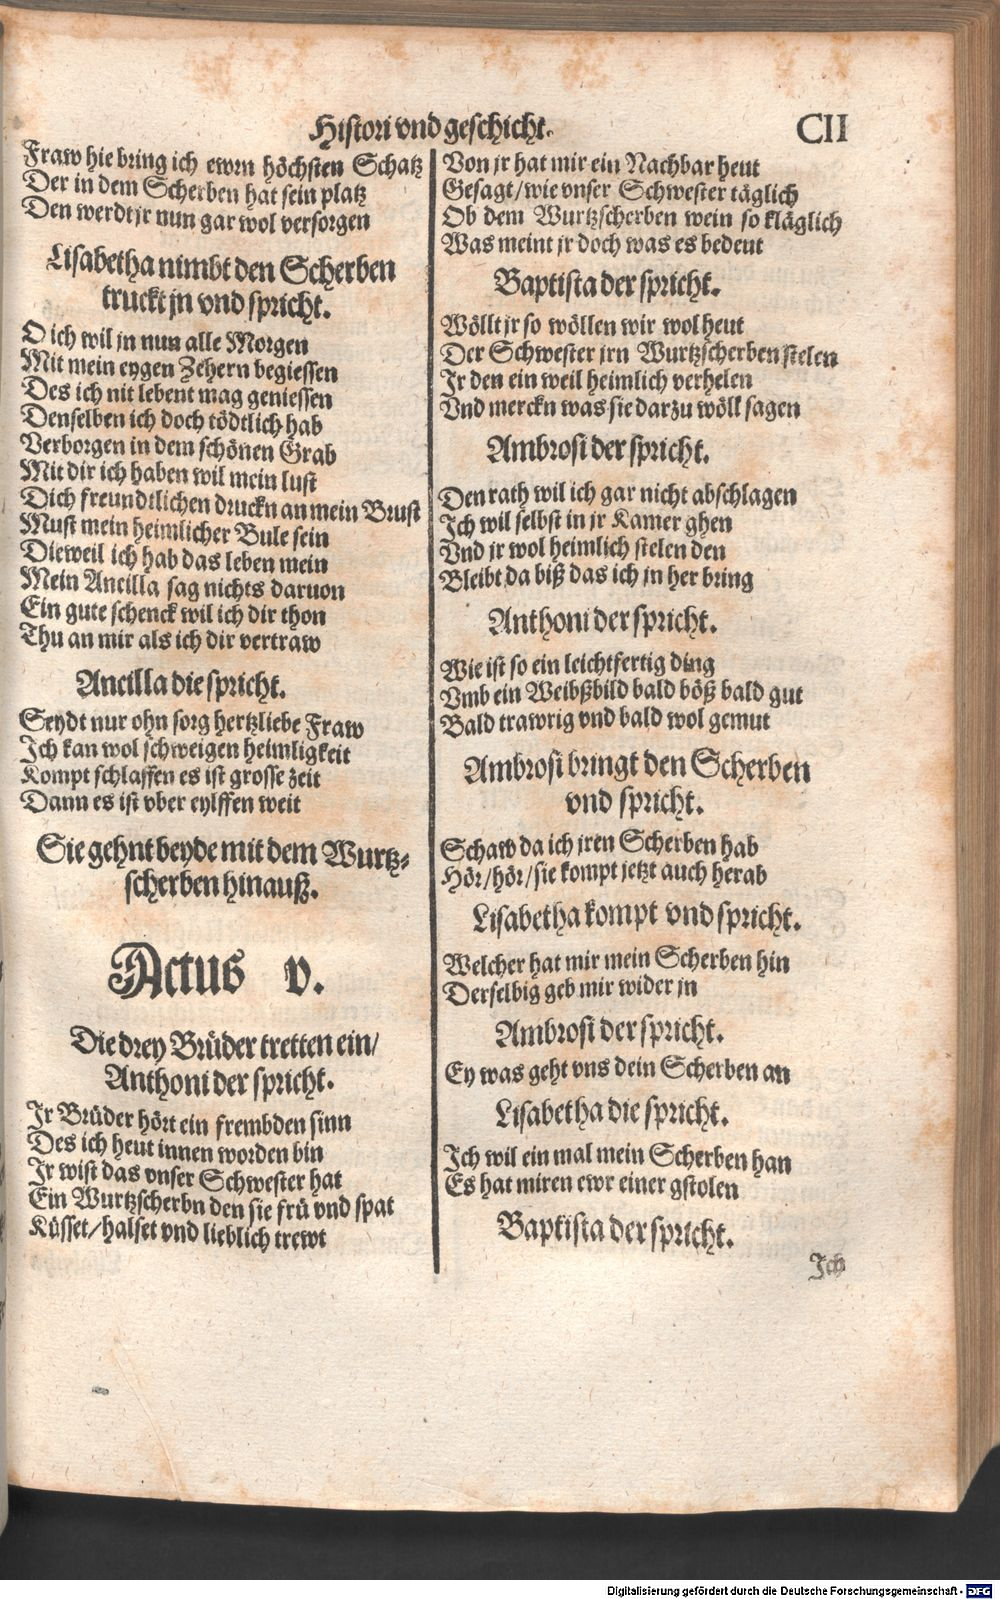 Histori vnd geschicht.
CII
Fraw hie bring ich ewrn höchsten Schatz
Der in dem Scherben hat sein platz
Den werdt jr nun gar wol versorgen
Lisabetha nimbt den Scherben
truckt jn vnd spricht.
O ich wil jn nun alle Morgen
Mit mein eygen Zehern begiessen
Des ich nit lebent mag geniessen
Denselben ich doch tödtlich hab
Verborgen in dem schönen Grab
Mit dir ich haben wil mein lust
Dich freundtlichen druckn an mein Brust
Must mein heimlicher Bule sein
Dieweil ich hab das leben mein
Mein Ancilla sag nichts daruon
Ein gute schenck wil ich dir thon
Thu an mir als ich dir vertraw
Ancilla die spricht.
Seydt nur ohn sorg hertzliebe Fraw
Ich kan wol schweigen heimligkeit
Kompt schlaffen es ist grosse zeit
Dann es ist vber eylffen weit
Sie gehnt beyde mit dem Wurtz-
scherben hinauß.
Actus v.
Die drey Brüder tretten ein/
Anthoni der spricht.
Ir Brüder hört ein frembden sinn
Des ich heut innen worden bin
Ir wist das vnser Schwester hat
Ein Wurtzscherbn den sie frü vnd spat
Küsset/halset vnd lieblich trewt
Von jr hat mir ein Nachbar heut
Gesagt/wie vnser Schwester täglich
Ob dem Wurtzscherben wein so kläglich
Was meint jr doch was es bedeut
Baptista der spricht.
Wöllt jr so wöllen wir wol heut
Der Schwester jrn Wurtzscherben stelen
Ir den ein weil heimlich verhelen
Vnd merckn was sie darzu wöll sagen
Ambrosi der spricht.
Den rath wil ich gar nicht abschlagen
Ich wil selbst in jr Kamer ghen
Vnd jr wol heimlich stelen den
Bleibt da biß das ich jn her bring
Anthoni der spricht.
Wie ist so ein leichtfertig ding
Vmb ein Weibßbild bald böß bald gut
Bald trawrig vnd bald wol gemut
Ambrosi bringt den Scherben
vnd spricht.
Schaw da ich jren Scherben hab
Hör/hör/sie kompt jetzt auch herab
Lisabetha kompt vnd spricht.
Welcher hat mir mein Scherben hin
Derselbig geb mir wider jn
Ambrosi der spricht.
Ey was geht vns dein Scherben an
Lisabetha die spricht.
Ich wil ein mal mein Scherben han
Es hat miren ewr einer gstolen
Baptista der spricht.
Ich
Digitalisierung gefördert durch die Deutsche Forschungsgemeinschaft - DFG